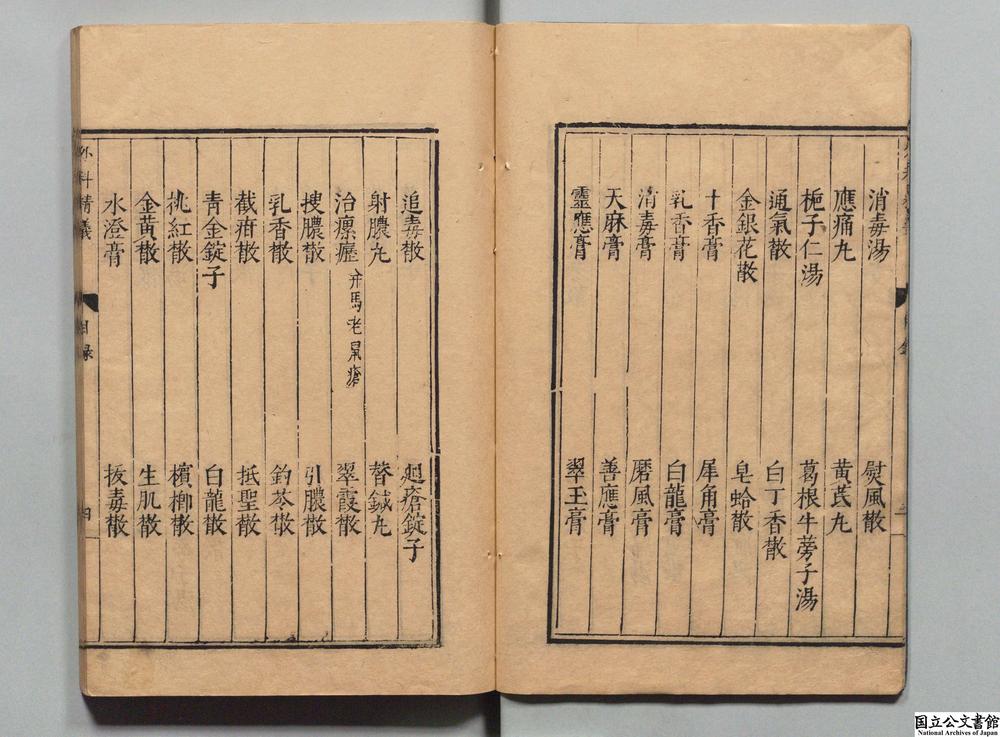 消毒湯 熨風散
應痛丸 黄芪丸
梔子仁湯 葛根牛蒡子湯
通氣散 白丁香散
金銀花散 皂蛤散
十香膏 犀角膏
乳香膏 白龍膏
消毒膏 磨風膏
天麻膏 善應膏
靈應膏 翠玉膏
追毒散 廻瘡錠子
射膿丸 替鍼丸
治瘰癧 并馬老鼠瘡 翠霞散
搜膿散 引膿散
乳香散 鈞苓散
截疳散 抵聖散
青金錠子 白龍散
桃紅散 檳榔散
金黄散 生肌散
水澄膏 拔毒散
外科精義 目録 四
国立公文書館
National Archives of Japan